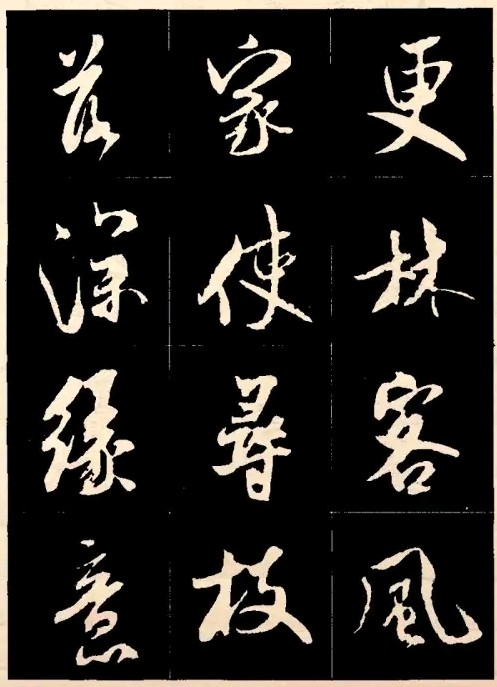 更林客風
家使尋枝
落深緣意